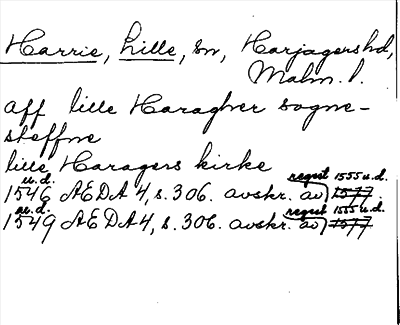 Harrie, Lille, sn, Harjagers hd,
Malm. l.
aff lille Haragher sogne-
steffne
lille Haragers kirke
u.d. regest 1555 u.d.
1546 AEDA 4, s. 306. avskr. av 1577.
u.d. regest 1555 u.d.
1549 AEDA 4, s. 306. avskr. av 1577